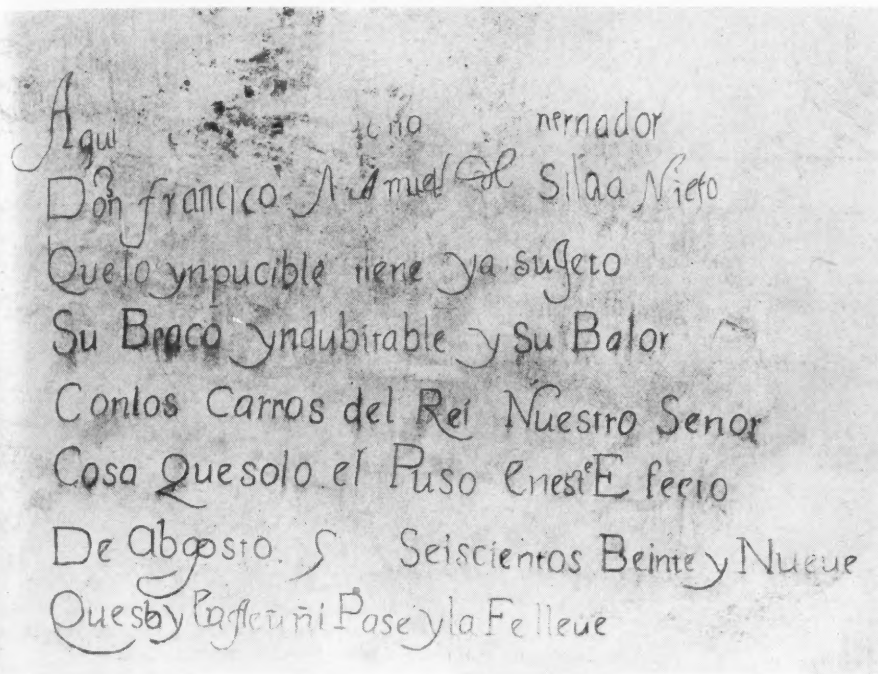 Aqui
Don francico Manuel de Silua Nieto
Que lo ynpucible tiene ya sugeto
Su Braco yndubitable y su Balor
Con los Carros del Rei Nuestro Senor
Cosa Que solo el Puso en este Efecto
De Abgosto Seiscientos Beinte y Nueue
Pase y la Fe lleue